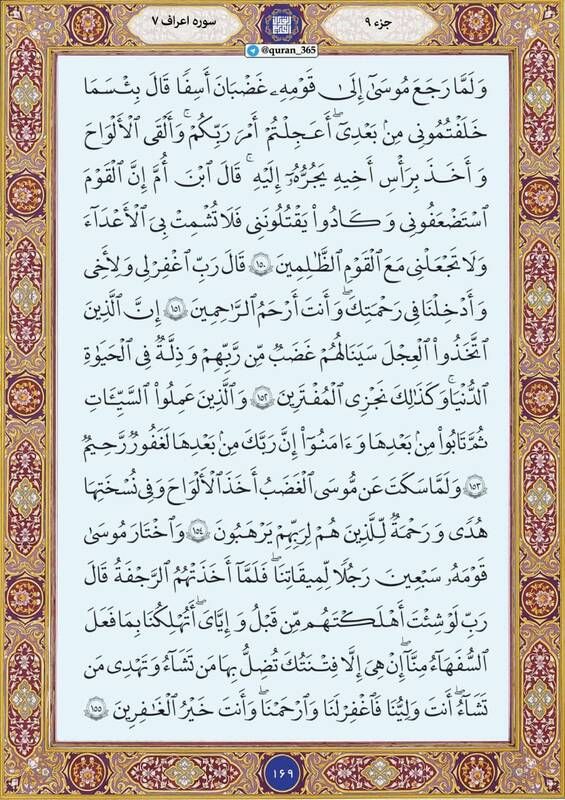 جزء ۹
سوره اعراف ۷
@quran_365
وَلَمَّا رَجَعَ مُوسَىٰٓ إِلَىٰ قَوْمِهِۦ غَضْبَٰنَ أَسِفًا قَالَ بِئْسَمَا
خَلَفْتُمُونِى مِنۢ بَعْدِىٓ ۖ أَعَجِلْتُمْ أَمْرَ رَبِّكُمْ ۖ وَأَلْقَى ٱلْأَلْوَاحَ
وَأَخَذَ بِرَأْسِ أَخِيهِ يَجُرُّهُۥٓ إِلَيْهِ ۚ قَالَ ٱبْنَ أُمَّ إِنَّ ٱلْقَوْمَ
ٱسْتَضْعَفُونِى وَكَادُوا۟ يَقْتُلُونَنِى فَلَا تُشْمِتْ بِىَ ٱلْأَعْدَآءَ
وَلَا تَجْعَلْنِى مَعَ ٱلْقَوْمِ ٱلظَّٰلِمِينَ ۝١٥٠ قَالَ رَبِّ ٱغْفِرْ لِى وَلِأَخِى
وَأَدْخِلْنَا فِى رَحْمَتِكَ ۖ وَأَنتَ أَرْحَمُ ٱلرَّٰحِمِينَ ۝١٥١ إِنَّ ٱلَّذِينَ
ٱتَّخَذُوا۟ ٱلْعِجْلَ سَيَنَالُهُمْ غَضَبٌ مِّن رَّبِّهِمْ وَذِلَّةٌ فِى ٱلْحَيَوٰةِ
ٱلدُّنْيَا ۚ وَكَذَٰلِكَ نَجْزِى ٱلْمُفْتَرِينَ ۝١٥٢ وَٱلَّذِينَ عَمِلُوا۟ ٱلسَّيِّـَٔاتِ
ثُمَّ تَابُوا۟ مِنۢ بَعْدِهَا وَءَامَنُوٓا۟ إِنَّ رَبَّكَ مِنۢ بَعْدِهَا لَغَفُورٌ رَّحِيمٌ
۝١٥٣ وَلَمَّا سَكَتَ عَن مُّوسَى ٱلْغَضَبُ أَخَذَ ٱلْأَلْوَاحَ ۖ وَفِى نُسْخَتِهَا
هُدًى وَرَحْمَةٌ لِّلَّذِينَ هُمْ لِرَبِّهِمْ يَرْهَبُونَ ۝١٥٤ وَٱخْتَارَ مُوسَىٰ
قَوْمَهُۥ سَبْعِينَ رَجُلًا لِّمِيقَٰتِنَا ۖ فَلَمَّآ أَخَذَتْهُمُ ٱلرَّجْفَةُ قَالَ
رَبِّ لَوْ شِئْتَ أَهْلَكْتَهُم مِّن قَبْلُ وَإِيَّٰىَ ۖ أَتُهْلِكُنَا بِمَا فَعَلَ
ٱلسُّفَهَآءُ مِنَّآ ۖ إِنْ هِىَ إِلَّا فِتْنَتُكَ تُضِلُّ بِهَا مَن تَشَآءُ وَتَهْدِى مَن
تَشَآءُ ۖ أَنتَ وَلِيُّنَا فَٱغْفِرْ لَنَا وَٱرْحَمْنَا ۖ وَأَنتَ خَيْرُ ٱلْغَٰفِرِينَ ۝١٥٥
١٦٩